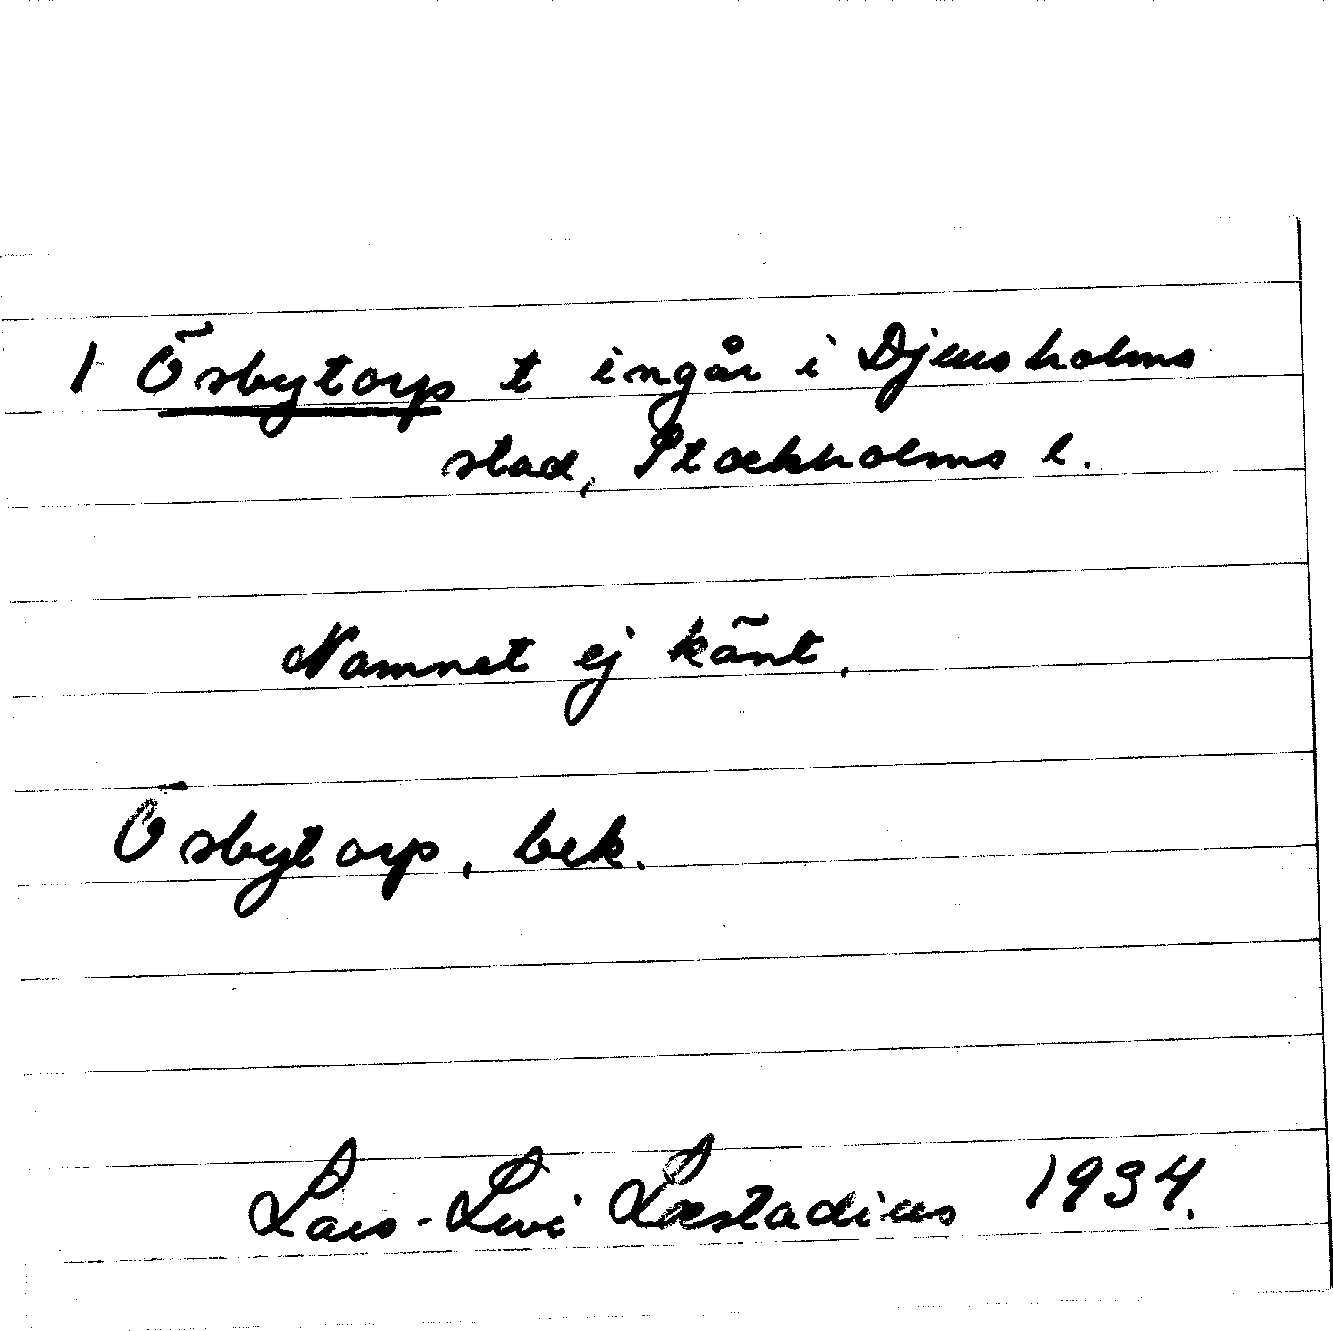 1 Ösbytorp t ingår i Djursholms
stad, Stockholms l.
Namnet ej känt.
Ösbytorp, bek.
Lars-Levi Læstadius 1934.